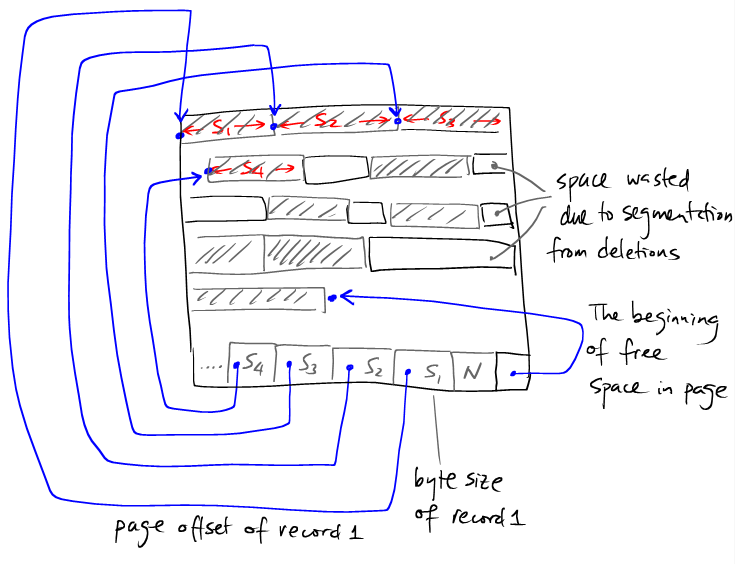 S1 S2 S3
S4
space wasted
due to segmentation
from deletions
The beginning
of free
space in page
.... S4 S3 S2 S1 N
byte size
of record 1
page offset of record 1